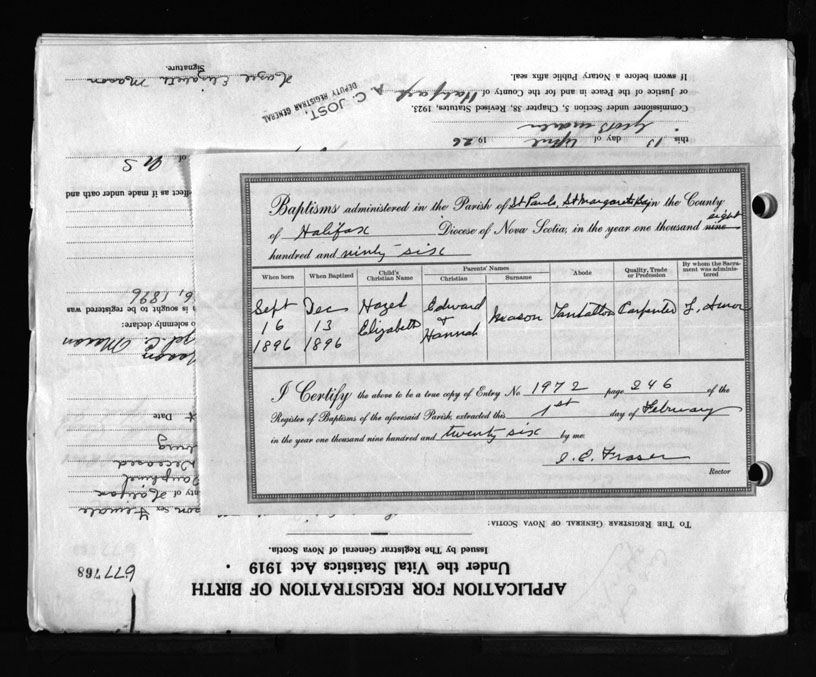 Baptisms administered in the Parish of St Pauls, St Margarets Bay in the County
of Halifax Diocese of Nova Scotia, in the year one thousand nine eight
hundred and ninty six
When born When Baptized Child's Christian Name Parents' Names Christian Surname Abode Quality, Trade or Profession By whom the Sacrament was administered
Sept Dec Hazel Edward Mason Tantallon Carpenter
16 13 Elizabeth &
1896 1896 Hannah
I Certify the above to be a true copy of Entry No 1972 page 246 of the
Register of Baptisms of the aforesaid Parish, extracted this 1st day of February
in the year one thousand nine hundred and twenty six by me
Fraser
Rector
677768
APPLICATION FOR REGISTRATION OF BIRTH
Under the Vital Statistics Act 1919
Issued by The Registrar General of Nova Scotia.
TO THE REGISTRAR GENERAL OF NOVA SCOTIA:
sex Female
of Halifax
Deceased
Date
o solemnly declare:
is sought to be registered was
6, 1896
effect as if made under oath and
of N S
this 13 day of April 1926
Commissioner under Section 3, Chapter 38, Revised Statutes, 1923.
or Justice of the Peace in and for the County of Halifax
If sworn before a Notary Public affix seal.
A. C. JOST,
DEPUTY REGISTRAR GENERAL
Hazel Elizabeth Mason
Signature.